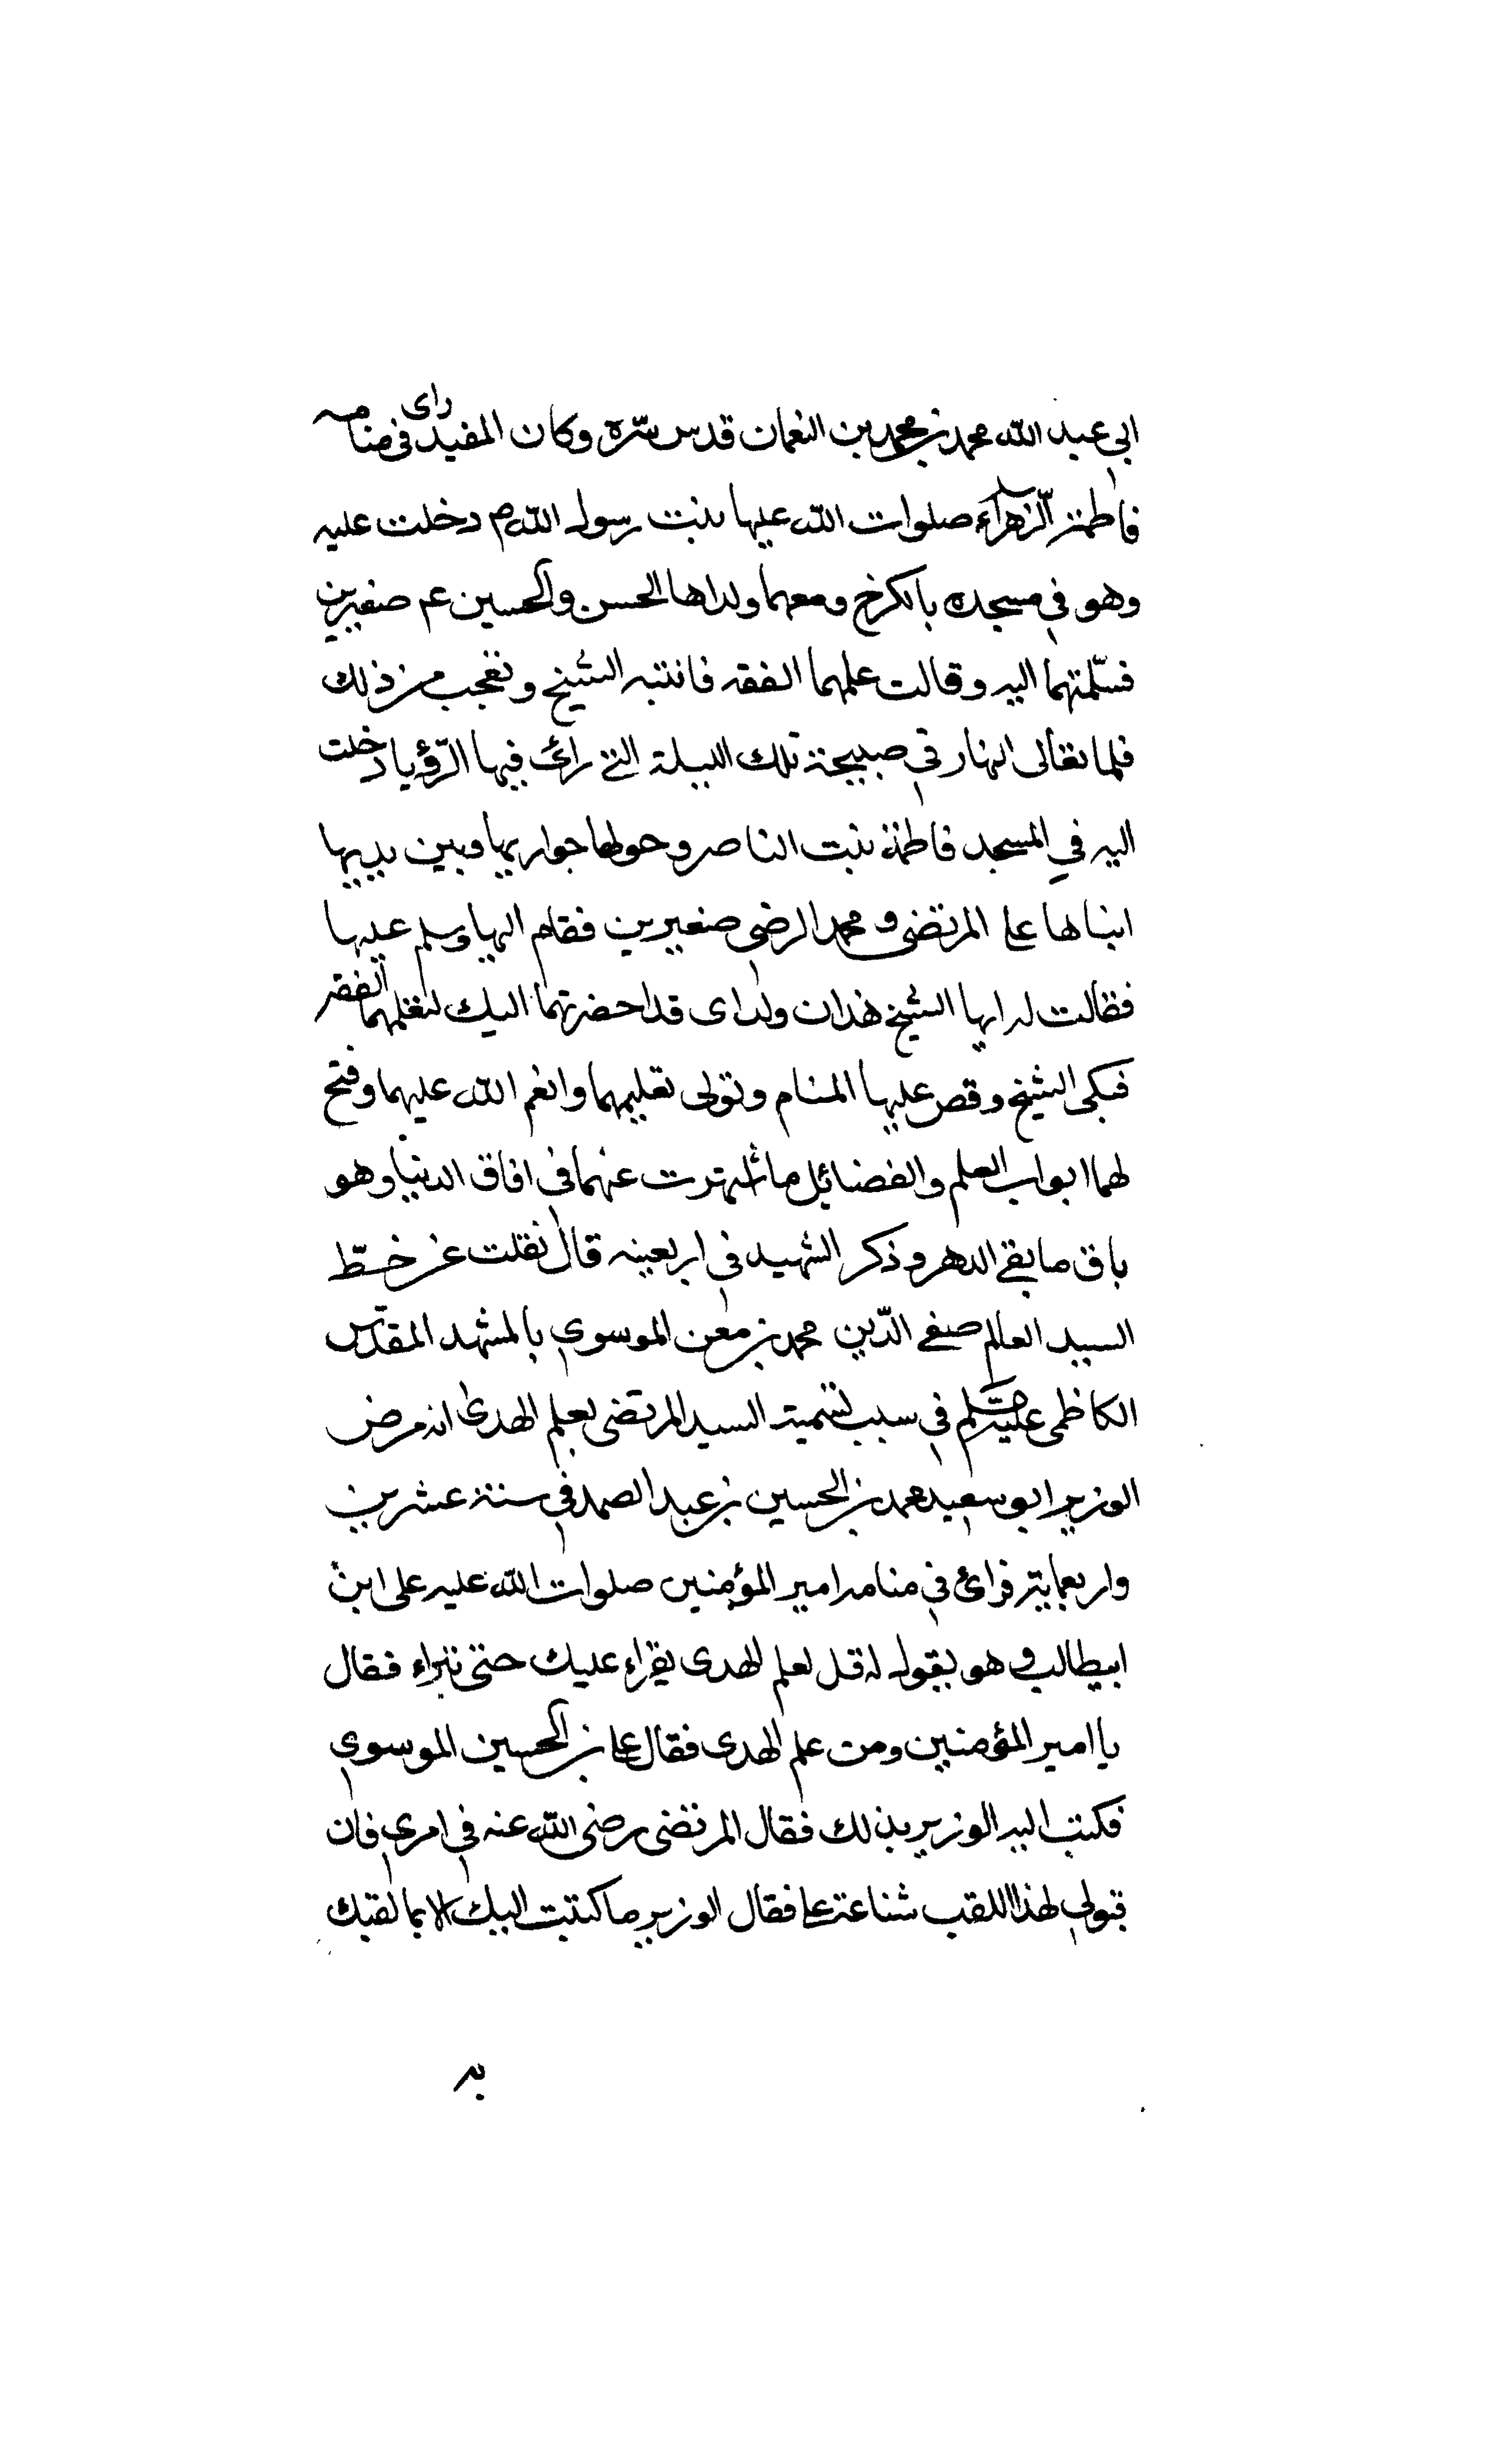 ابي عبد الله محمد بن محمد بن النعمان قدس سّره وكان المفيد راى في منامه
فاطمة الزّهراء صلوات الله عليها بنت رسول الله ص دخلت عليه
وهو في مسجده بالكرخ ومعها ولداها الحسن والحسين عم صغيرين
فسّلمتهما اليه وقالت علمهما الفقه فانتبه الشيخ وتعجب من ذلك
فلما تعالى النهار في صبيحة تلك الليلة التي رائ فيها الرّؤيا دخلت
اليه في المسجد فاطمة بنت الناصر وحولها جواريها وبين يديها
ابناها على المرتضى و محمد الرضي صغيرين فقام اليها وسلم عليها
فقالت له ايها الشيخ هذان ولداى قد احضرتهما اليك لتعلمهما الفقه
فبكى الشيخ وقص عليها المنام وتولى تعليمهما وانعم الله عليهما وفتح
لهما ابواب العلم والفضائل ما اشتهرت عنهما في افاق الدنيا وهو
باق ما بقي الدهر وذكر الشهيد في اربعينه قال نقلت عن خطّ
السيد العالم صفي الدّين محمد بن معن الموسوي بالمشهد المقدّس
الكاظمى في سبب تسمية السيد المرتضى بعلم الهدى انه مرض
الوزير ابو سعيد محمد بن الحسين بن عبد الصمد في سنة عشرين
واربعماية فرائ في منامه امير المؤمنين صلوات الله عليه على ابن
ابيطالب و هو يقول له قل لعلم الهدى يقراء عليك حتى تبراء فقال
يا امير المؤمنين ومن علم الهدى فقال على بن الحسين الموسوي
فكتب اليه الوزير بذلك فقال المرتضى رضى الله عنه في امري فان
قبولي لهذا اللقب شناعة على فقال الوزير ما كتبت اليك الا بما لقبك
به